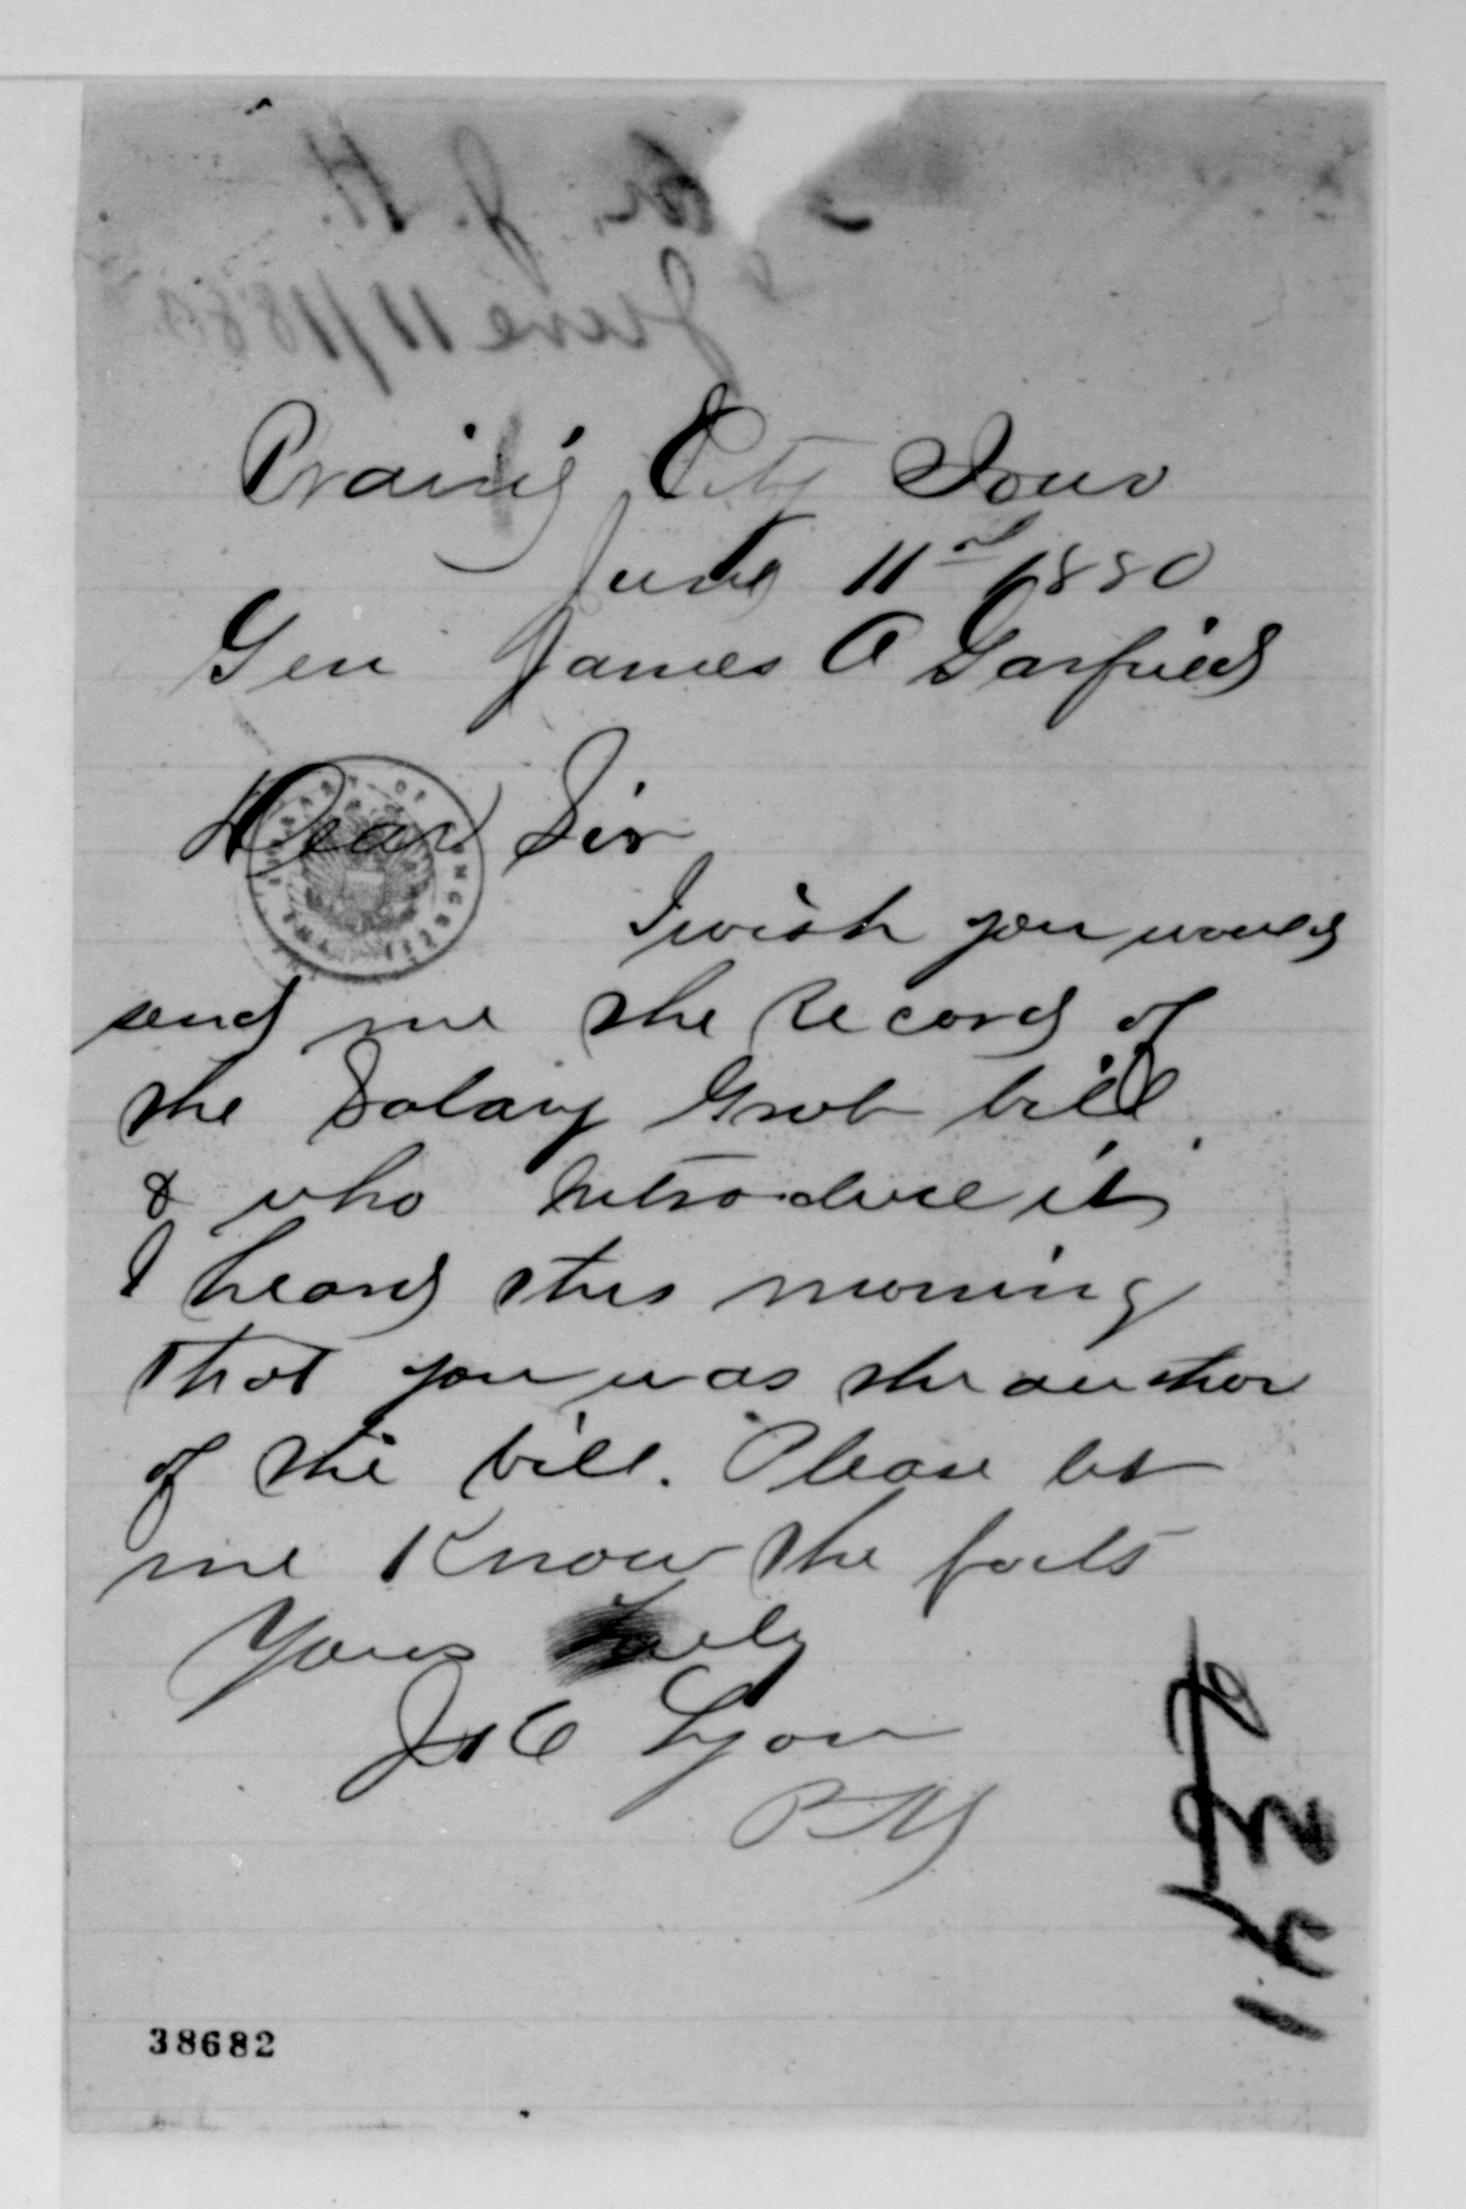 Prairie City Iowa
June 11th 1880
Gen James A Garfield
Dear Sir
I wish you would
send me the Record of
the Salary Grab bill
& who introduce it
I heard this morning
that you was the author
of the bill. Please let
me Know the facts
Yours Truly
J C Lyon
PM
38682
June 11/1880